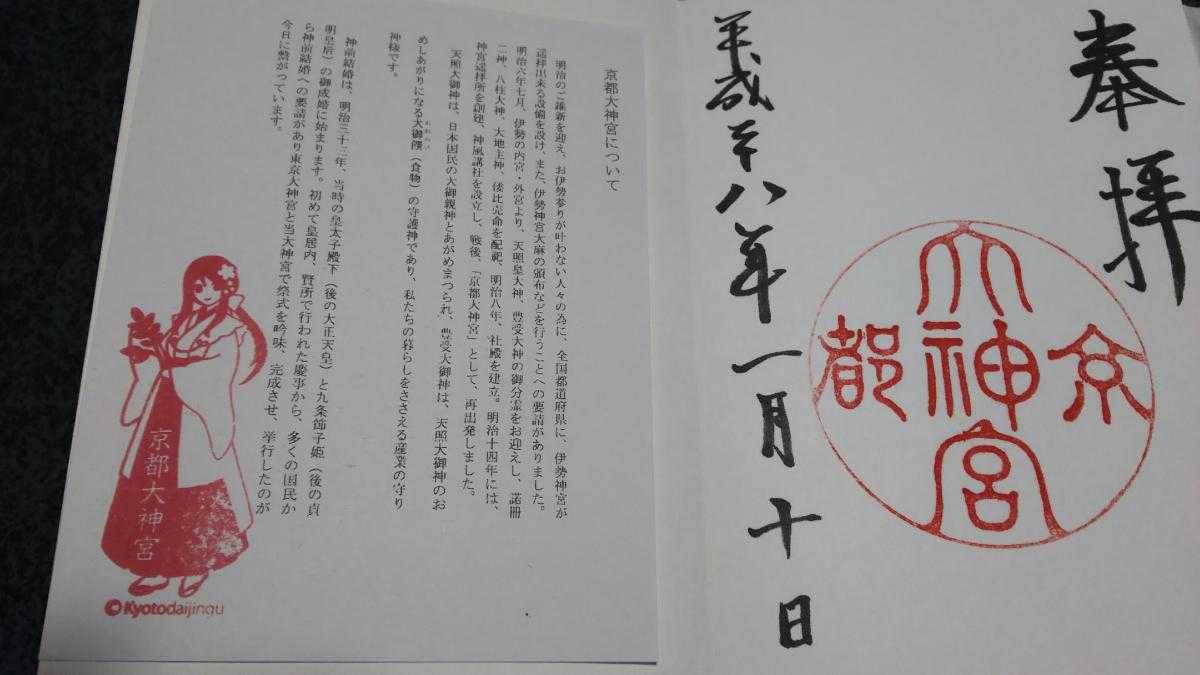 奉拝
京都
大神宮
平成廿八年一月十日
京都大神宮について
明治のご維新を迎え、お伊勢参りが叶わない人々の為に、全国都道府県に、伊勢神宮が
遥拝出来る設備を設け、また、伊勢神宮大麻の頒布などを行うことへの要請がありました。
明治六年七月、伊勢の内宮・外宮より、天照皇大神、豊受大神の御分霊をお迎えし、諾冊
二神、八柱大神、大地主神、倭比売命を配祀、明治八年、社殿を建立。明治十四年には、
神宮遥拝所を創建、神風講社を設立し、戦後、「京都大神宮」として、再出発しました。
天照大御神は、日本国民の大御親神とあがめまつられ、豊受大御神は、天照大御神のお
めしあがりになる大御饌（食物）の守護神であり、私たちの暮らしをささえる産業の守り
神様です。
神前結婚は、明治三十三年、当時の皇太子殿下（後の大正天皇）と九条節子姫（後の貞
明皇后）の御成婚に始まります。初めて皇居内、賢所で行われた慶事から、多くの国民か
ら神前結婚への要請があり東京大神宮と当大神宮で祭式を吟味、完成させ、挙行したのが
今日に繋がっています。
京都大神宮
©Kyotodaijingu